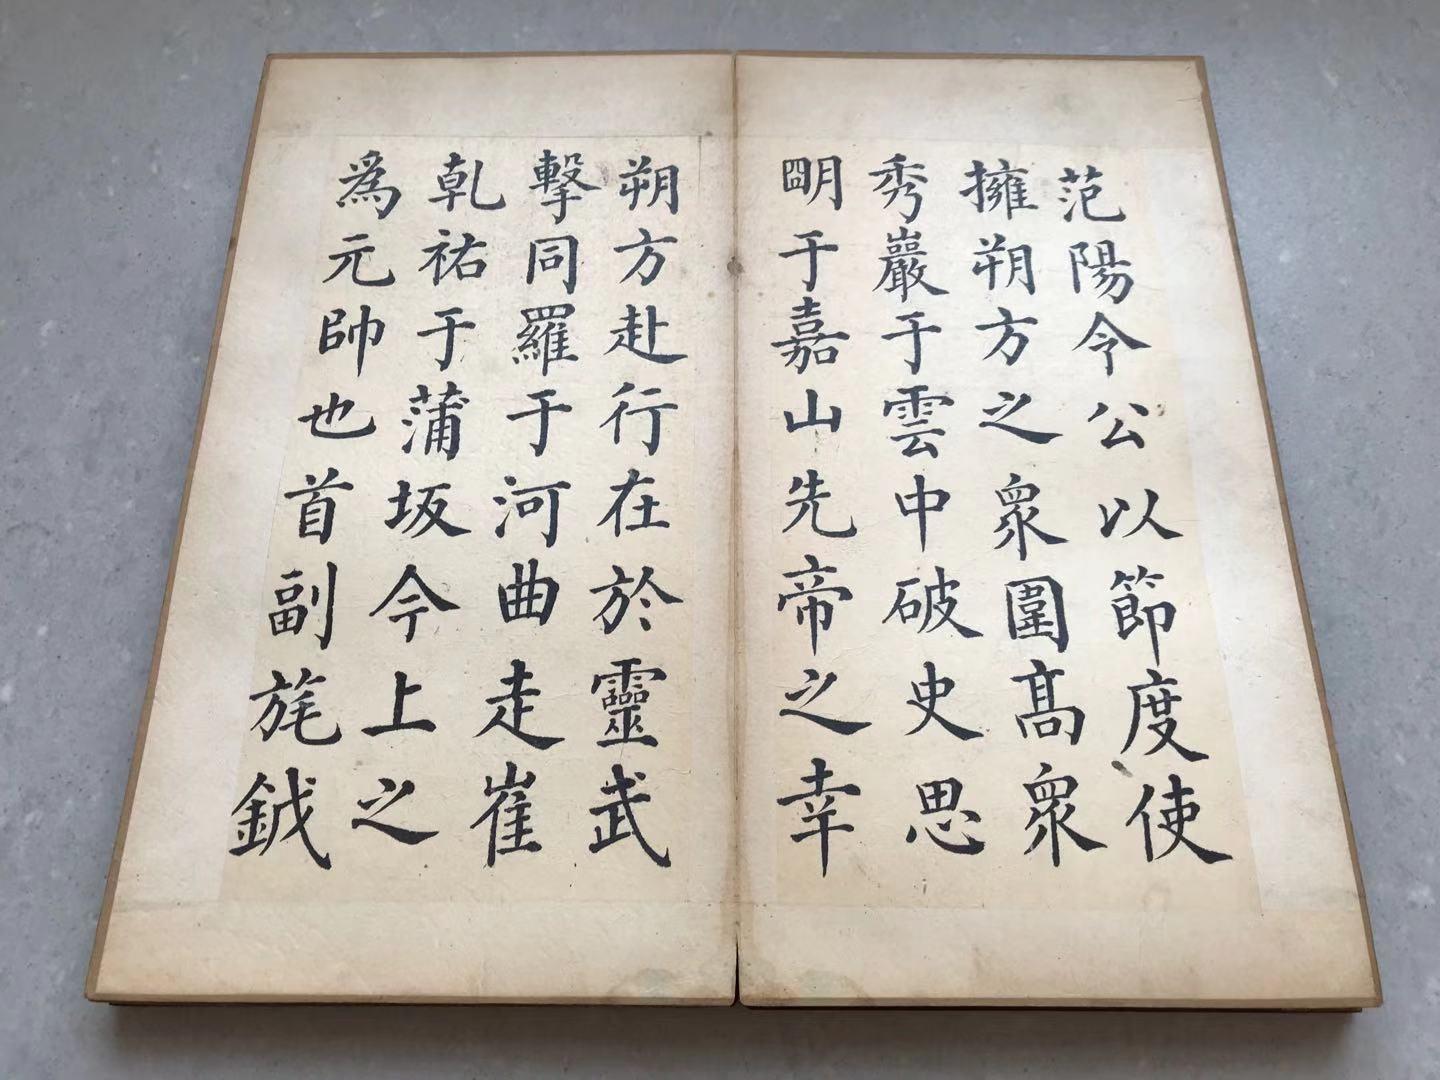 范陽令公以節度使
擁朔方之衆圍髙衆
秀巖于雲中破史思
明于嘉山先帝之幸
朔方赴行在於靈武
擊同羅于河曲走崔
乹祐于蒲坂今上之
為元帥也首副旄鉞